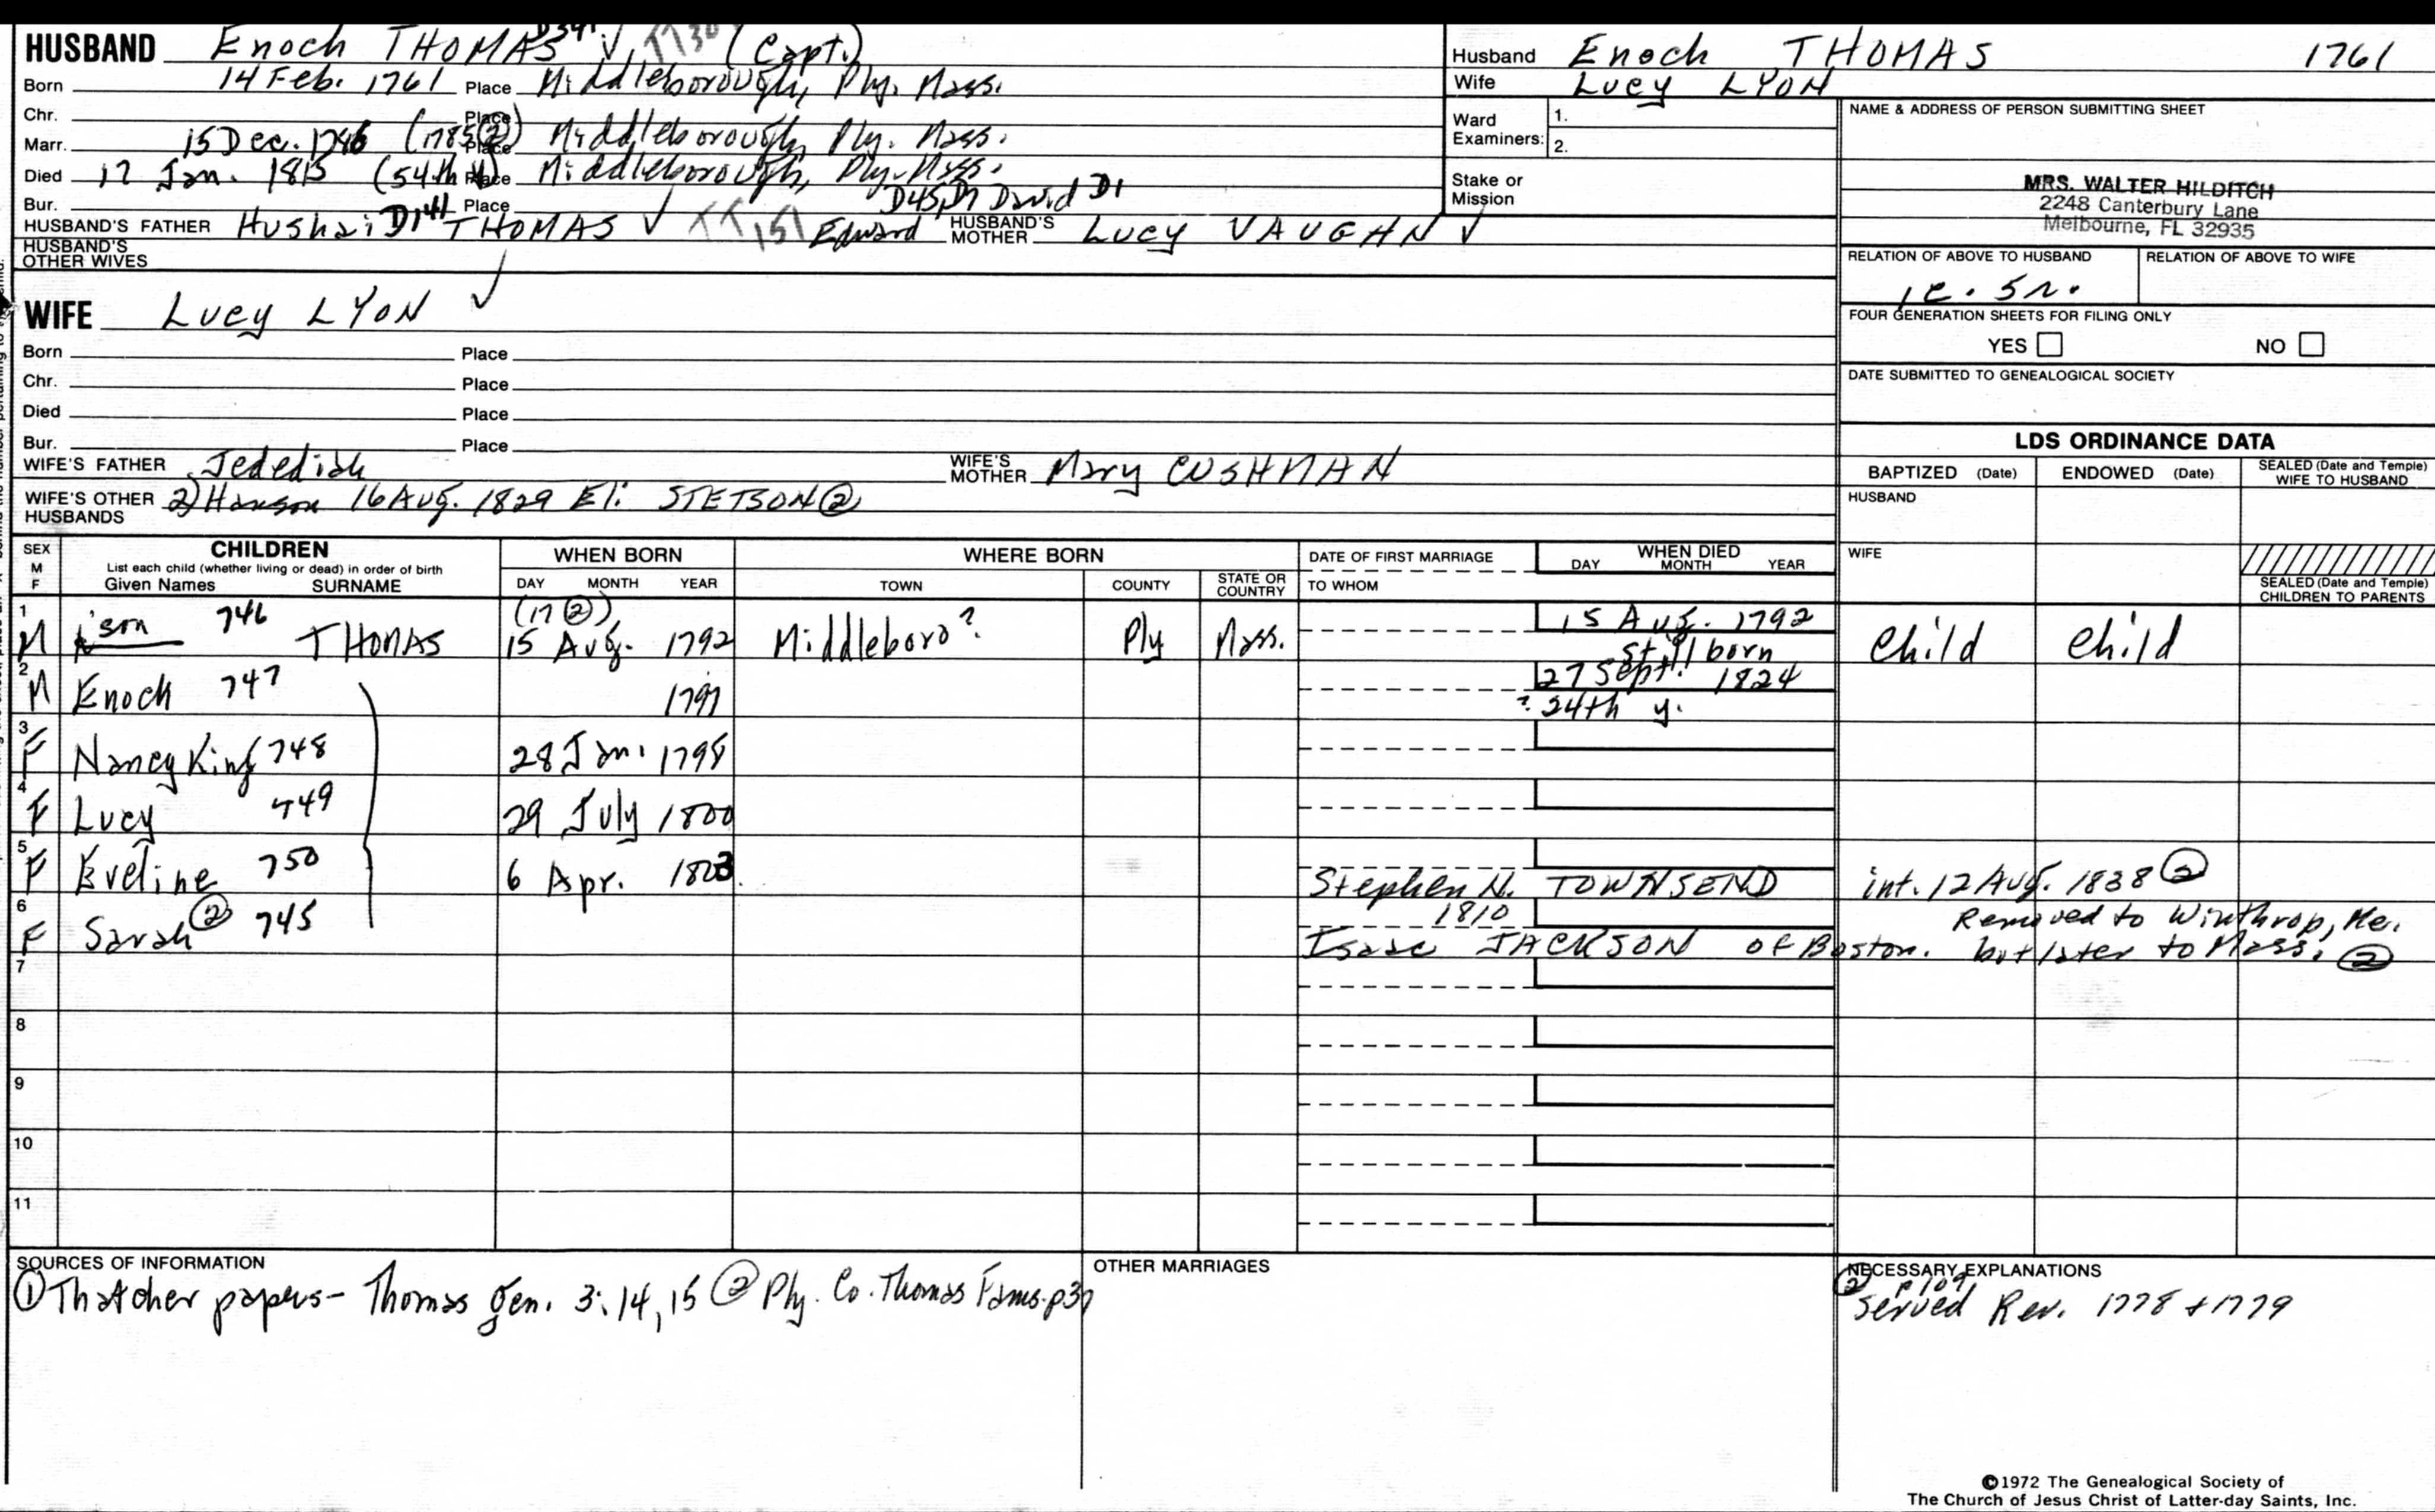 HUSBAND Enoch THOMAS D391 ✓ TT30 (Capt.)
Born 14 Feb. 1761 Place Middleborough, Ply. Mass.
Chr. Place
Marr. 15 Dec. 1746 (1785②) Place Middleborough, Ply. Mass.
Died 17 Jan. 1815 (54th y) Place Middleborough, Ply. Mass.
Bur. Place
HUSBAND'S FATHER Hushai D141 THOMAS ✓ TT151 Edward D45, D7 David D1 HUSBAND'S MOTHER Lucy VAUGHN ✓
HUSBAND'S OTHER WIVES
WIFE Lucy LYON ✓
Born Place
Chr. Place
Died Place
Bur. Place
WIFE'S FATHER Jedediah WIFE'S MOTHER Mary CUSHMAN
WIFE'S OTHER HUSBANDS 2) Hanson 16 Aug. 1829 Eli STETSON ②
Husband Enoch THOMAS 1761
Wife Lucy LYON
Ward Examiners: 1.
2.
Stake or Mission
NAME & ADDRESS OF PERSON SUBMITTING SHEET
MRS. WALTER HILDITCH
2248 Canterbury Lane
Melbourne, FL 32935
RELATION OF ABOVE TO HUSBAND RELATION OF ABOVE TO WIFE
FOUR GENERATION SHEETS FOR FILING ONLY
YES NO
DATE SUBMITTED TO GENEALOGICAL SOCIETY
LDS ORDINANCE DATA
BAPTIZED (Date) ENDOWED (Date) SEALED (Date and Temple) WIFE TO HUSBAND
HUSBAND
WIFE
SEALED (Date and Temple) CHILDREN TO PARENTS
SEX M F CHILDREN List each child (whether living or dead) in order of birth Given Names SURNAME
WHEN BORN DAY MONTH YEAR
WHERE BORN TOWN COUNTY STATE OR COUNTRY
DATE OF FIRST MARRIAGE TO WHOM
WHEN DIED DAY MONTH YEAR
1 M son 746 THOMAS (17②) 15 Aug. 1792 Middleboro? Ply Mass. 15 Aug. 1792 Stillborn Child Child
2 M Enoch 747 1791 27 Sept. 1824 ? 24th y.
3 F Nancy King 748 28 Jan. 1798
4 F Lucy 749 29 July 1800
5 F Eveline 750 6 Apr. 1803 Stephen N. TOWNSEND int. 12 Aug. 1838 ②
6 F Sarah ② 745 1810 Isaac JACKSON of Boston. Removed to Winthrop, Me. but later to Mass. ②
7
8
9
10
11
SOURCES OF INFORMATION
① Thatcher papers- Thomas Gen. 3:14,15 ② Ply. Co. Thomas Fams. p39
OTHER MARRIAGES
NECESSARY EXPLANATIONS
② p109
Served Rev. 1778 + 1779
©1972 The Genealogical Society of
The Church of Jesus Christ of Latter-day Saints, Inc.